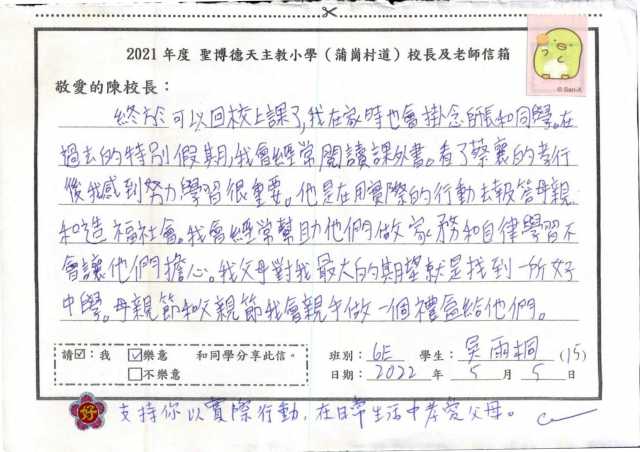 2021 年度 聖博德天主教小學（蒲崗村道）校長及老師信箱
© San-X
敬愛的陳校長：
終於可以回校上課了，我在家時也會掛念師長和同學。在
過去的特別假期，我會經常閱讀課外書。看了蔡襄的孝行
後我感到努力學習很重要。他是在用實際的行動去報答母親
和造福社會。我會經常幫助他們做家務和自律學習不
會讓他們擔心。我父母對我最大的期望就是找到一所好
中學。母親節和父親節我會親手做一個禮盒給他們。
請☑：我 ☑樂意 和同學分享此信。
□不樂意
班別：6E 學生：吳雨桐 (15)
日期：2022 年 5 月 5 日
好
支持你以實際行動，在日常生活中孝愛父母。